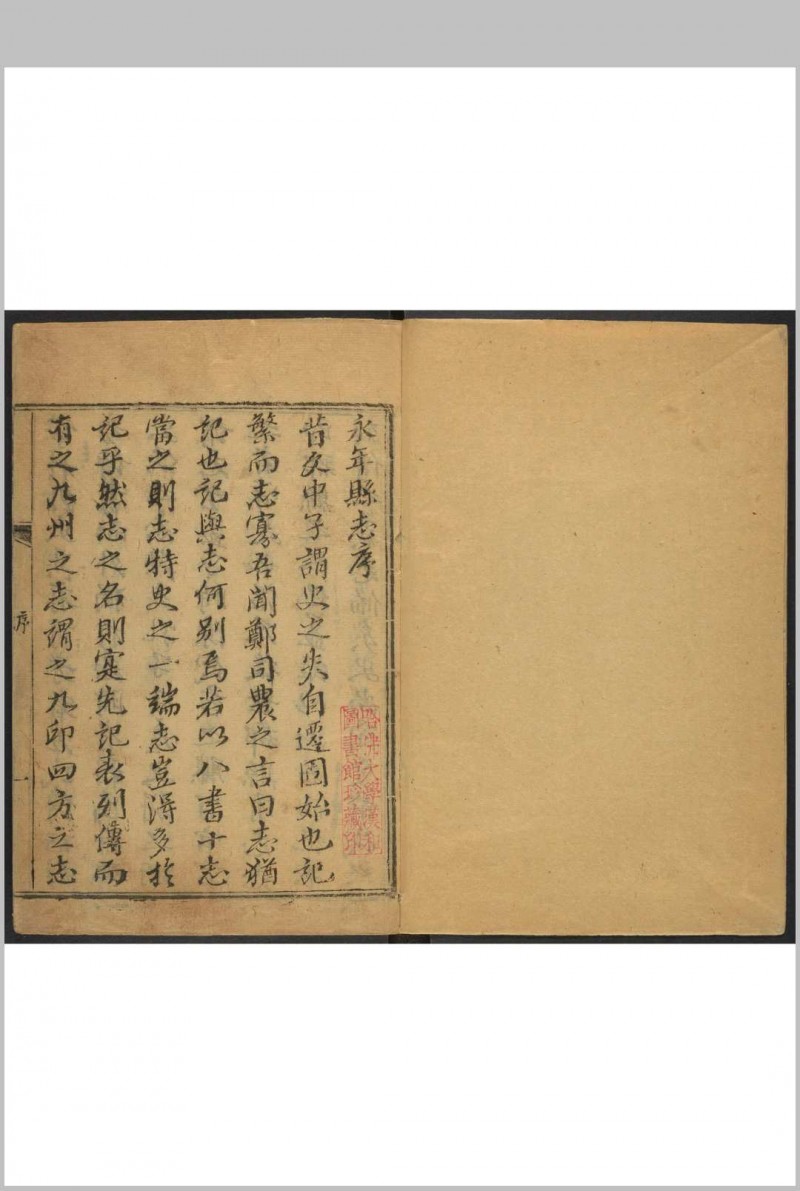 永年縣志序
昔文中子謂史之失自遷固始也記
繁而志寡吾聞鄭司農之言曰志猶
記也記與志何别焉若以八書十志
當之則志特史之一端志豈得多於
記乎然志之名則寔先記表列傳而
有之九州之志謂之九邱四方之志
序
一
哈佛大學漢和
圖書館珍藏印